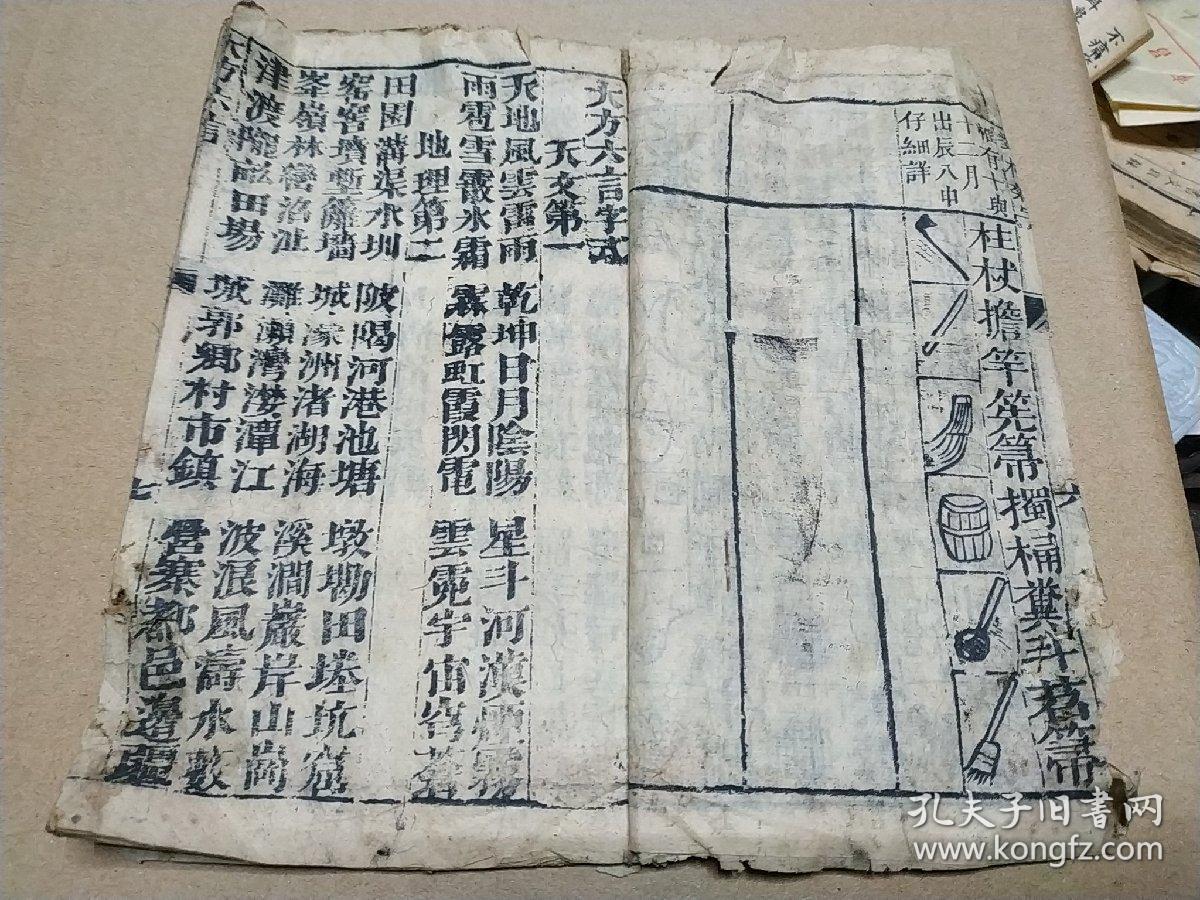 十二月
出辰八申
仔細詳
柱杖擔竿筅箒擉桶糞斗茗箒
六
大方六言字式
天文第一
天地風雲雷雨 乾坤日月陰陽 星斗河漢煙霧
雨雹雪霰氷霜 霖露虹霞閃電 雲霓宇宙穹蒼
地理第二
田園溝渠水圳 陂堨河港池塘 墩坳田坵坑窟
窑窖墳塹籬墻 城濠洲渚湖海 溪澗巖岸山崗
峯嶺林巒沼沚 灘瀨灣漤潭江 波浪風濤水
津渡 田場 城郭鄉村市鎮 營寨都邑邊疆
七
孔夫子旧书网
www.kongfz.com